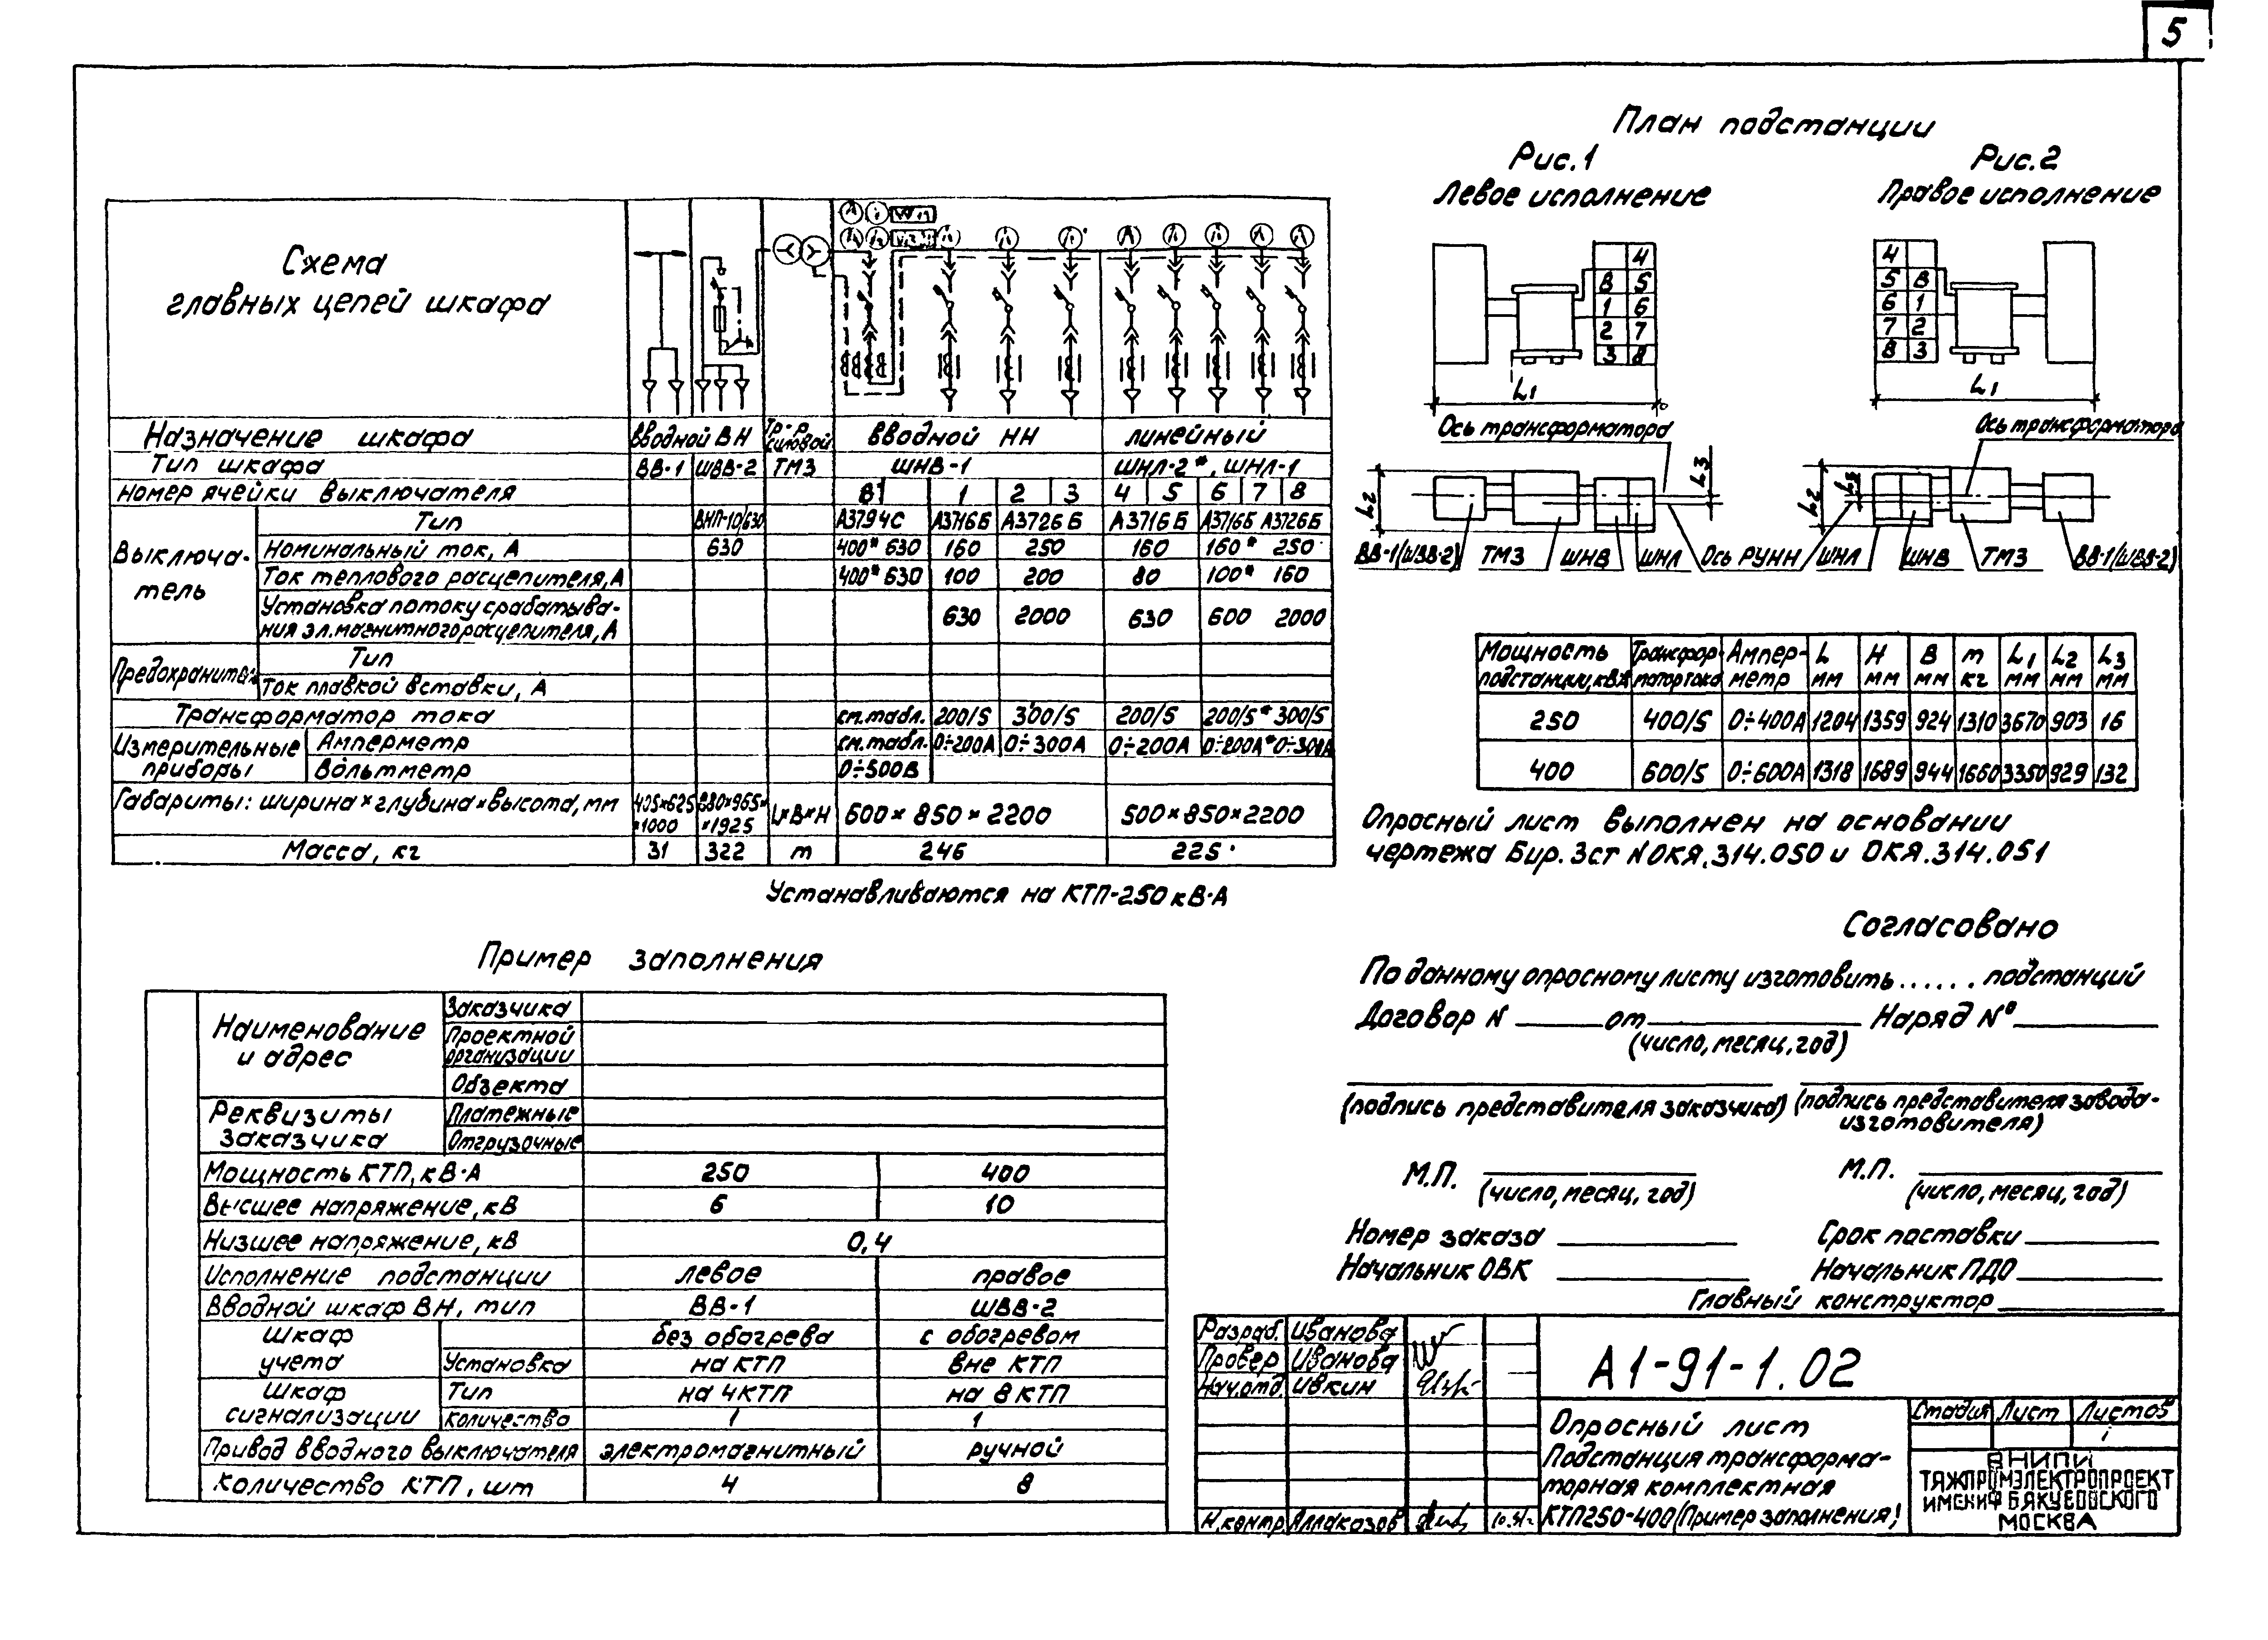 5
План подстанции
Рис.1
Левое исполнение
Рис.2
Правое исполнение
Схема
главных цепей шкафа
Назначение шкафа вводной ВН Тр-р силовой вводной НН линейный
Тип шкафа ВВ-1 ШВВ-2 ТМЗ ШНВ-1 ШНЛ-2*, ШНЛ-1
Номер ячейки выключателя В 1 2 3 4 5 6 7 8
Выключатель
Тип ВНП-10/630 А3794С А3716Б А3726Б А3716Б А3716Б А3726Б
Номинальный ток, А 630 400* 630 160 250 160 160* 250
Ток теплового расцепителя, А 400* 630 100 200 80 100* 160
Установка по току срабатыва-
ния эл.магнитного расцепителя, А 630 2000 630 600 2000
Тип
Ток плавкой вставки, А
Трансформатор тока см.табл. 200/5 300/5 200/5 200/5* 300/5
Измерительные приборы
Амперметр см.табл. 0÷200А 0÷300А 0÷200А 0÷200А* 0÷300А
Вольтметр 0÷500В
Габариты: ширина×глубина×высота, мм 405×625×1000 880×965××1925 L×B×H 600×850×2200 500×850×2200
Масса, кг 31 322 m 246 225
Устанавливаются на КТП-250 кВ·А
4
В 5
1 6
2 7
3 8
L1
4
5 В
6 1
7 2
8 3
L1
Ось трансформатора
Ось трансформатора
L2
L3
L2
L3
ВВ-1(ШВВ-2) ТМЗ ШНВ ШНЛ Ось РУНН ШНЛ ШНВ ТМЗ ВВ-1(ШВВ-2)
Мощность подстанции, кВА Трансформатор тока Амперметр L мм H мм B мм m кг L1 мм L2 мм L3 мм
250 400/5 0÷400А 1204 1359 924 1310 3670 903 16
400 600/5 0÷600А 1318 1689 944 1660 3350 929 132
Опросный лист выполнен на основании
чертежа Бир. Зст №ОКЯ.314.050 и ОКЯ.314.051
Пример заполнения
Наименование
и адрес
Заказчика
Проектной
организации
Объекта
Реквизиты
заказчика
Платежные
Отгрузочные
Мощность КТП, кВ·А 250 400
Высшее напряжение, кВ 6 10
Низшее напряжение, кВ 0,4
Исполнение подстанции левое правое
Вводной шкаф ВН, тип ВВ-1 ШВВ-2
Шкаф
учета
без обогрева с обогревом
Установка на КТП вне КТП
Шкаф
сигнализации
Тип на 4КТП на 8 КТП
Количество 1 1
Привод вводного выключателя электромагнитный ручной
Количество КТП, шт 4 8
Согласовано
По данному опросному листу изготовить ...... подстанций
Договор N от Наряд №
(число, месяц, год)
(подпись представителя заказчика) (подпись представителя завода-
изготовителя)
М.П. М.П.
(число, месяц, год) (число, месяц, год)
Номер заказа Срок поставки
Начальник ОВК Начальник ПДО
Главный конструктор
Разраб. Иванова
Провер Иванова
Нач.отд. Ивкин
Н.контр. Аллакозов
А1-91-1.02
Опросный лист
Подстанция трансформа-
торная комплектная
КТП250-400 (Пример заполнения)
Стадия Лист Листов
1
ВНИПИ
ТЯЖПРОМЭЛЕКТРОПРОЕКТ
ИМЕНИ Ф.Б.ЯКУБОВСКОГО
МОСКВА